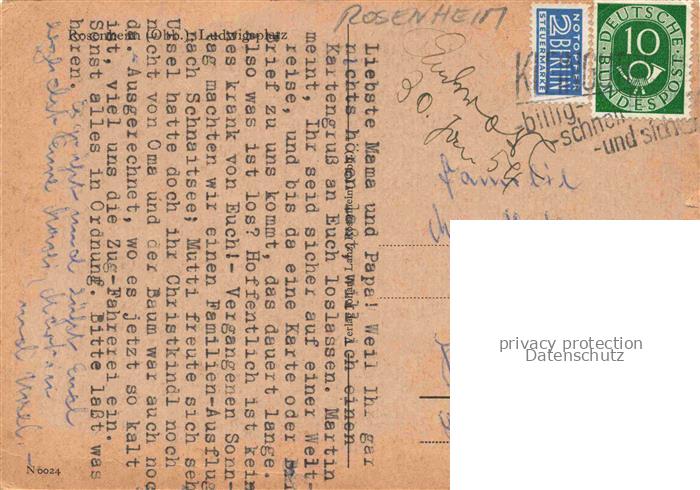 ROSENHEIM
Rosenheim (Obb.) Ludwigsplatz
NOTOPFER
2 BERLIN
STEUERMARKE
DEUTSCHE
10
BUNDESPOST
billig-
-schnell
-und sicher
30. Jan. 54
Familie
Liebste Mama und Papa! Weil Ihr gar
nichts hören laßt, will ich einen
Kartengruß an Euch loslassen. Martin
meint, Ihr seid sicher auf einer Welt-
reise, und bis da eine Karte oder
Brief zu uns kommt, das dauert lange.
Also was ist los? Hoffentlich ist kein
es krank von Euch!- Vergangenen Sonn-
tag machten wir einen Familien-Ausflug
nach Schnaitsee; Mutti freute sich seh
Ursel hatte doch ihr Christkindl noch
nicht von Oma und der Baum war auch noc
da. Ausgerechnet, wo es jetzt so kalt
ist, viel uns die Zug-Fahrerei ein.
Sonst alles in Ordnung. Bitte laßt was
hören. Es grüßt und küßt Euch
Martin
und Ursel.-
N 6024
privacy protection
Datenschutz